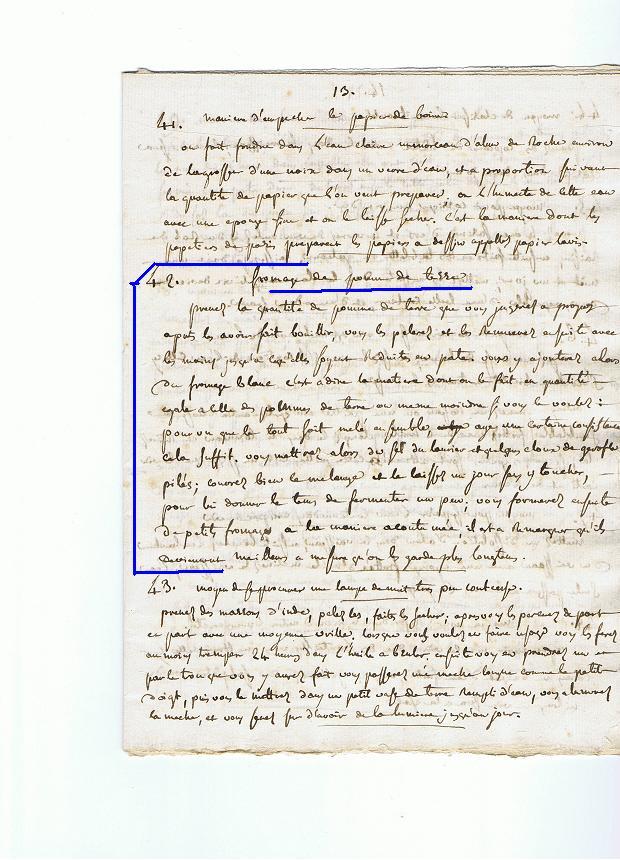 13.
41. maniere d'empecher le papier de boire
on fait fondre dans l'eau claire un morceau d'alun de Roche environ
de la grosseur d'une noix dans un verre d'eau, et a proportion suivant
la quantité de papier que l'on veut preparer, on l'humecte de cette eau
avec une eponge fine et on le laisse secher. c'est la maniere dont les
papetiers de paris preparent les papiers a dessin appellés papier lavis.
42. fromage de pomme de terre
prenez la quantité de pomme de terre que vous jugerez a propos
après les avoir fait bouillir, vous les pelerez et les remuerez ensuite avec
les mains jusqu'a ce qu'elles soyent reduites en pate. vous y ajouterez alors
du fromage blanc c'est a dire la matiere dont on le fait en quantité
egale a celle des pommes de terre ou meme moindre si vous le voulez :
pourvu que le tout soit melé ensemble, aye une certaine consistance
cela suffit. vous mettrez alors du sel du laurier et quelques cloux de gerofle
pilés ; couvrez bien le melange et le laissez un jour sans y toucher,
pour lui donner le tems de fermenter un peu ; vous formerez ensuite
de petits fromages a la maniere acoutumée, il est a remarquer qu'ils
deviennent meilleurs a mesure qu'on les garde plus longtems.
43. moyen de se procurer une lampe de nuit tres peu couteuse.
prenez des marrons d'inde, pelez les, faites les secher ; apres vous les percerez de part
en part avec une moyenne vrille. lorsque vous voulez en faire usage vous les ferez
au moins tremper 24 heures dans l'huile a bruler. ensuite vous en prendrez un et
par le trou que vous y aurez fait vous passerez une meche longue comme le petit
doigt, puis vous le mettrez dans un petit vase de terre rempli d'eau, vous allumerez
la meche, et vous serez sur d'avoir de la lumiere jusqu'au jour.